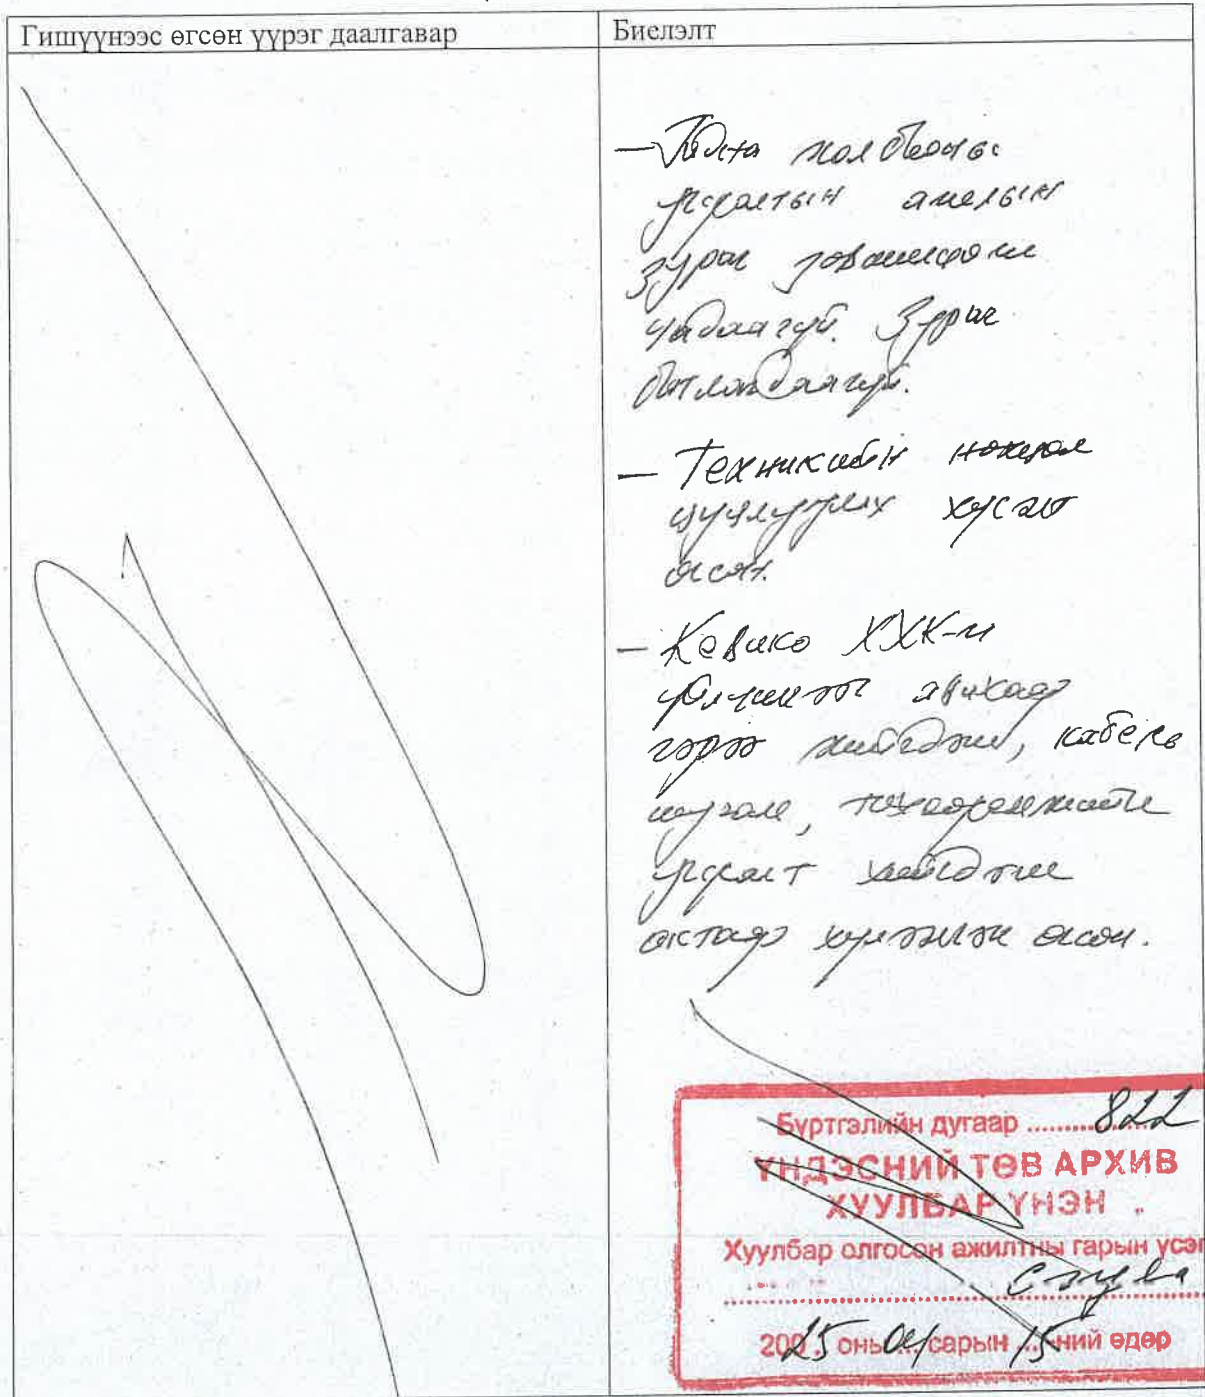 Гишүүнээс өгсөн үүрэг даалгавар
Биелэлт
— Гадна холбооны
угсралтын ажлын
зураг зөвшилцөж
чадаагүй. Зураг
батлагдаагүй.
— Техникийн нөхцөл
цуцлуулах хүсэлт
өгсөн.
— Кевико ХХК-и
авахаар
гэрээ хийгдэж, кабель
шугам, тоноглолжийн
угсралт хийгдэж
хүлээлгэж өгсөн.
Бүртгэлийн дугаар .......... 822
ҮНДЭСНИЙ ТӨВ АРХИВ
ХУУЛБАР ҮНЭН
Хуулбар олгосон ажилтны гарын үсэг
2025 оны 04 сарын 15-ний өдөр